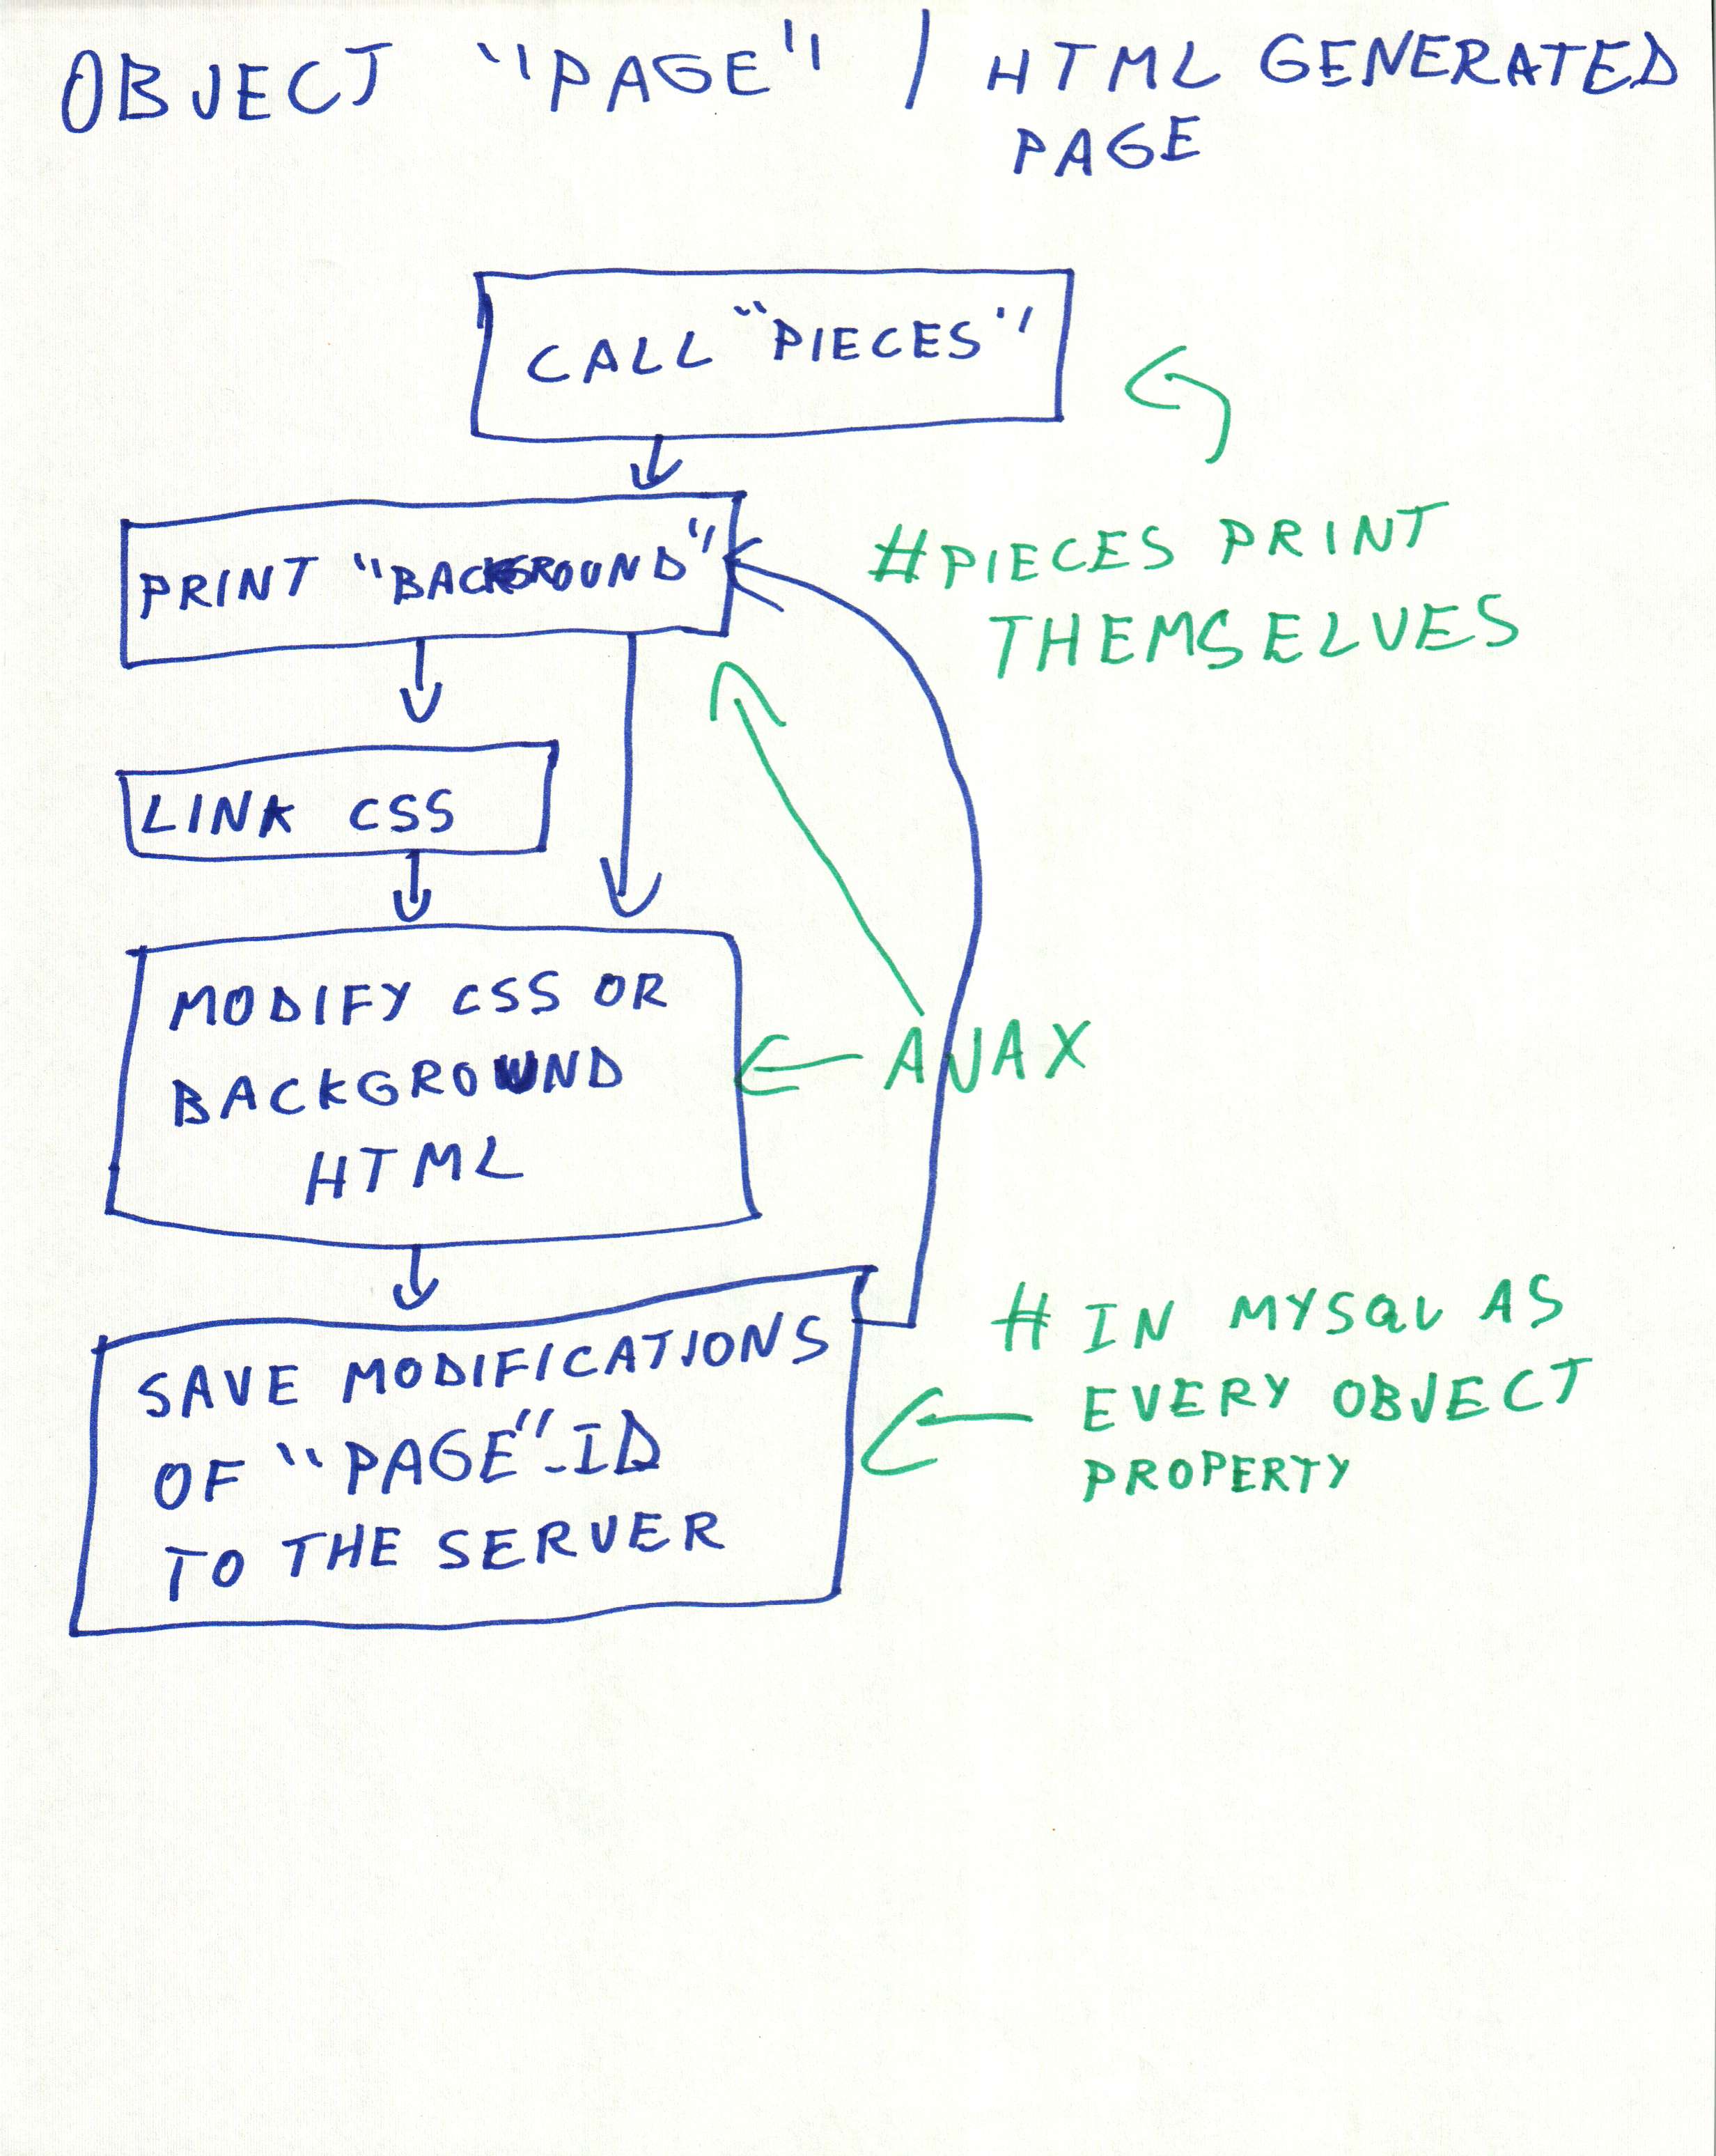 OBJECT "PAGE" / HTML GENERATED
PAGE
CALL "PIECES"
PRINT "BACKGROUND"
#PIECES PRINT
THEMSELVES
LINK CSS
MODIFY CSS OR
BACKGROUND
HTML
AJAX
SAVE MODIFICATIONS
OF "PAGE"-ID
TO THE SERVER
# IN MYSQL AS
EVERY OBJECT
PROPERTY